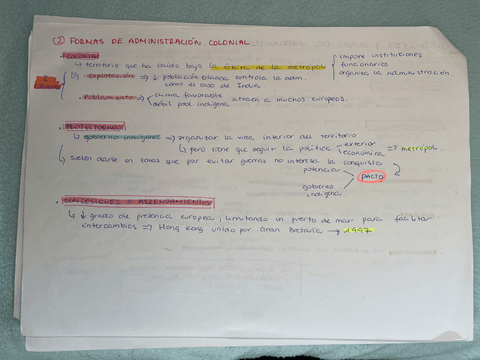 ② FORMAS DE ADMINISTRACIÓN COLONIAL
COLONIAS
↳ territorio que ha caído bajo la órbita de la metrópoli
impone instituciones
funcionarios
organiza la administración
explotación ⇒ ↓ población blanca controla la adm.
como el caso de India
poblamiento
clima favorable
débil pobl. indígena
atraen a muchos europeos.
PROTECTORADO
↳ gobierno indígena → organizar la vida interior del territorio
↳ pero tiene que seguir la política
exterior
económica
⇒ metrópoli.
↳ suelen darse en zonas que por evitar guerras no interesa la conquista
potencia
gobierno indígena
PACTO
CONCESIONES O ARRENDAMIENTOS
↳ ↓ grado de presencia europea, limitando un puerto de mar para facilitar
intercambios ⇒ Hong Kong unido por Gran Bretaña → 1997